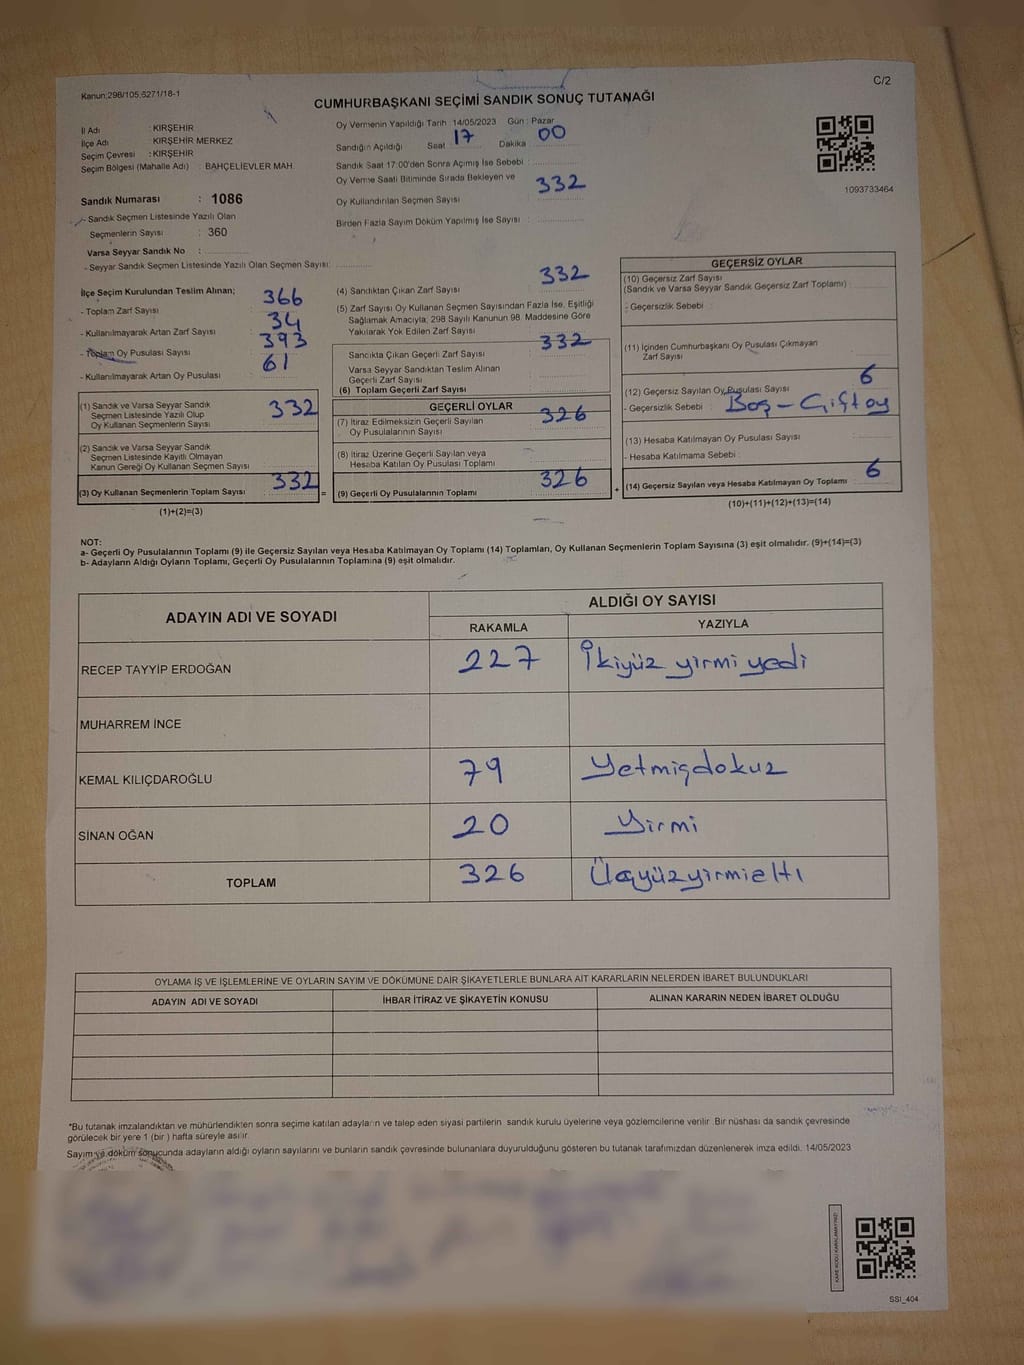 C/2
Kanun:298/105,6271/18-1
CUMHURBAŞKANI SEÇİMİ SANDIK SONUÇ TUTANAĞI
İl Adı : KIRŞEHİR
İlçe Adı : KIRŞEHİR MERKEZ
Seçim Çevresi : KIRŞEHİR
Seçim Bölgesi (Mahalle Adı) : BAHÇELİEVLER MAH.
Sandık Numarası : 1086
- Sandık Seçmen Listesinde Yazılı Olan
Seçmenlerin Sayısı : 360
Varsa Seyyar Sandık No :
- Seyyar Sandık Seçmen Listesinde Yazılı Olan Seçmen Sayısı:
Oy Vermenin Yapıldığı Tarih 14/05/2023 Gün : Pazar
Sandığın Açıldığı Saat 17 Dakika 00
Sandık Saat 17:00'den Sonra Açımış İse Sebebi :
Oy Verme Saati Bitiminde Sırada Bekleyen ve
Oy Kullandırılan Seçmen Sayısı 332
Birden Fazla Sayım Döküm Yapılmış İse Sayısı :
1093733464
İlçe Seçim Kurulundan Teslim Alınan;
- Toplam Zarf Sayısı 366
- Kullanılmayarak Artan Zarf Sayısı 34
- Toplam Oy Pusulası Sayısı 393
- Kullanılmayarak Artan Oy Pusulası 61
(1) Sandık ve Varsa Seyyar Sandık
Seçmen Listesinde Yazılı Olup
Oy Kullanan Seçmenlerin Sayısı 332
(2) Sandık ve Varsa Seyyar Sandık
Seçmen Listesinde Kayıtlı Olmayan
Kanun Gereği Oy Kullanan Seçmen Sayısı
(3) Oy Kullanan Seçmenlerin Toplam Sayısı 332 =
(1)+(2)=(3)
(4) Sandıktan Çıkan Zarf Sayısı 332
(5) Zarf Sayısı Oy Kullanan Seçmen Sayısından Fazla İse, Eşitliği
Sağlamak Amacıyla, 298 Sayılı Kanunun 98. Maddesine Göre
Yakılarak Yok Edilen Zarf Sayısı
Sandıkta Çıkan Geçerli Zarf Sayısı 332
Varsa Seyyar Sandıktan Teslim Alınan
Geçerli Zarf Sayısı
(6) Toplam Geçerli Zarf Sayısı
GEÇERLİ OYLAR
(7) İtiraz Edilmeksizin Geçerli Sayılan
Oy Pusulalarının Sayısı 326
(8) İtiraz Üzerine Geçerli Sayılan veya
Hesaba Katılan Oy Pusulası Toplamı
(9) Geçerli Oy Pusulalarının Toplamı 326 +
GEÇERSİZ OYLAR
(10) Geçersiz Zarf Sayısı
(Sandık ve Varsa Seyyar Sandık Geçersiz Zarf Toplamı) :
- Geçersizlik Sebebi :
(11) İçinden Cumhurbaşkanı Oy Pusulası Çıkmayan
Zarf Sayısı
(12) Geçersiz Sayılan Oy Pusulası Sayısı 6
- Geçersizlik Sebebi : Boş - Çiftoy
(13) Hesaba Katılmayan Oy Pusulası Sayısı
- Hesaba Katılmama Sebebi :
(14) Geçersiz Sayılan veya Hesaba Katılmayan Oy Toplamı 6
(10)+(11)+(12)+(13)=(14)
NOT:
a- Geçerli Oy Pusulalarının Toplamı (9) ile Geçersiz Sayılan veya Hesaba Katılmayan Oy Toplamı (14) Toplamları, Oy Kullanan Seçmenlerin Toplam Sayısına (3) eşit olmalıdır. (9)+(14)=(3)
b- Adayların Aldığı Oyların Toplamı, Geçerli Oy Pusulalarının Toplamına (9) eşit olmalıdır.
ADAYIN ADI VE SOYADI ALDIĞI OY SAYISI
RAKAMLA YAZIYLA
RECEP TAYYİP ERDOĞAN 227 İkiyüz yirmi yedi
MUHARREM İNCE
KEMAL KILIÇDAROĞLU 79 Yetmişdokuz
SİNAN OĞAN 20 Yirmi
TOPLAM 326 Üçyüzyirmialtı
OYLAMA İŞ VE İŞLEMLERİNE VE OYLARIN SAYIM VE DÖKÜMÜNE DAİR ŞİKAYETLERLE BUNLARA AİT KARARLARIN NELERDEN İBARET BULUNDUKLARI
ADAYIN ADI VE SOYADI İHBAR İTİRAZ VE ŞİKAYETİN KONUSU ALINAN KARARIN NEDEN İBARET OLDUĞU
*Bu tutanak imzalandıktan ve mühürlendikten sonra seçime katılan adayların ve talep eden siyasi partilerin sandık kurulu üyelerine veya gözlemcilerine verilir. Bir nüshası da sandık çevresinde
görülecek bir yere 1 (bir) hafta süreyle asılır.
Sayım ve döküm sonucunda adayların aldığı oyların sayılarını ve bunların sandık çevresinde bulunanlara duyurulduğunu gösteren bu tutanak tarafımızdan düzenlenerek imza edildi. 14/05/2023
KARE KODU KARALAMAYINIZ!
SSI_404